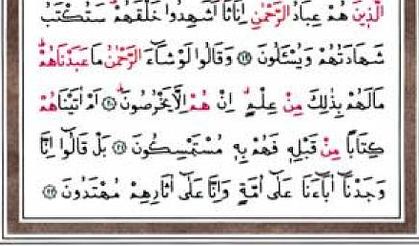 الَّذٖينَ هُمْ عِبَادُ الرَّحْمٰنِ اِنَاثًا اَشَهِدُوا خَلْقَهُمْ سَتُكْتَبُ
شَهَادَتُهُمْ وَيُسْـَٔلُونَ ﴿١٩﴾ وَقَالُوا لَوْ شَٓاءَ الرَّحْمٰنُ مَا عَبَدْنَاهُمْ
مَا لَهُمْ بِذٰلِكَ مِنْ عِلْمٍ اِنْ هُمْ اِلَّا يَخْرُصُونَ ﴿٢٠﴾ اَمْ اٰتَيْنَاهُمْ
كِتَابًا مِنْ قَبْلِهٖ فَهُمْ بِهٖ مُسْتَمْسِكُونَ ﴿٢١﴾ بَلْ قَالُٓوا اِنَّا
وَجَدْنَٓا اٰبَٓاءَنَا عَلٰٓى اُمَّةٍ وَاِنَّا عَلٰٓى اٰثَارِهِمْ مُهْتَدُونَ ﴿٢٢﴾